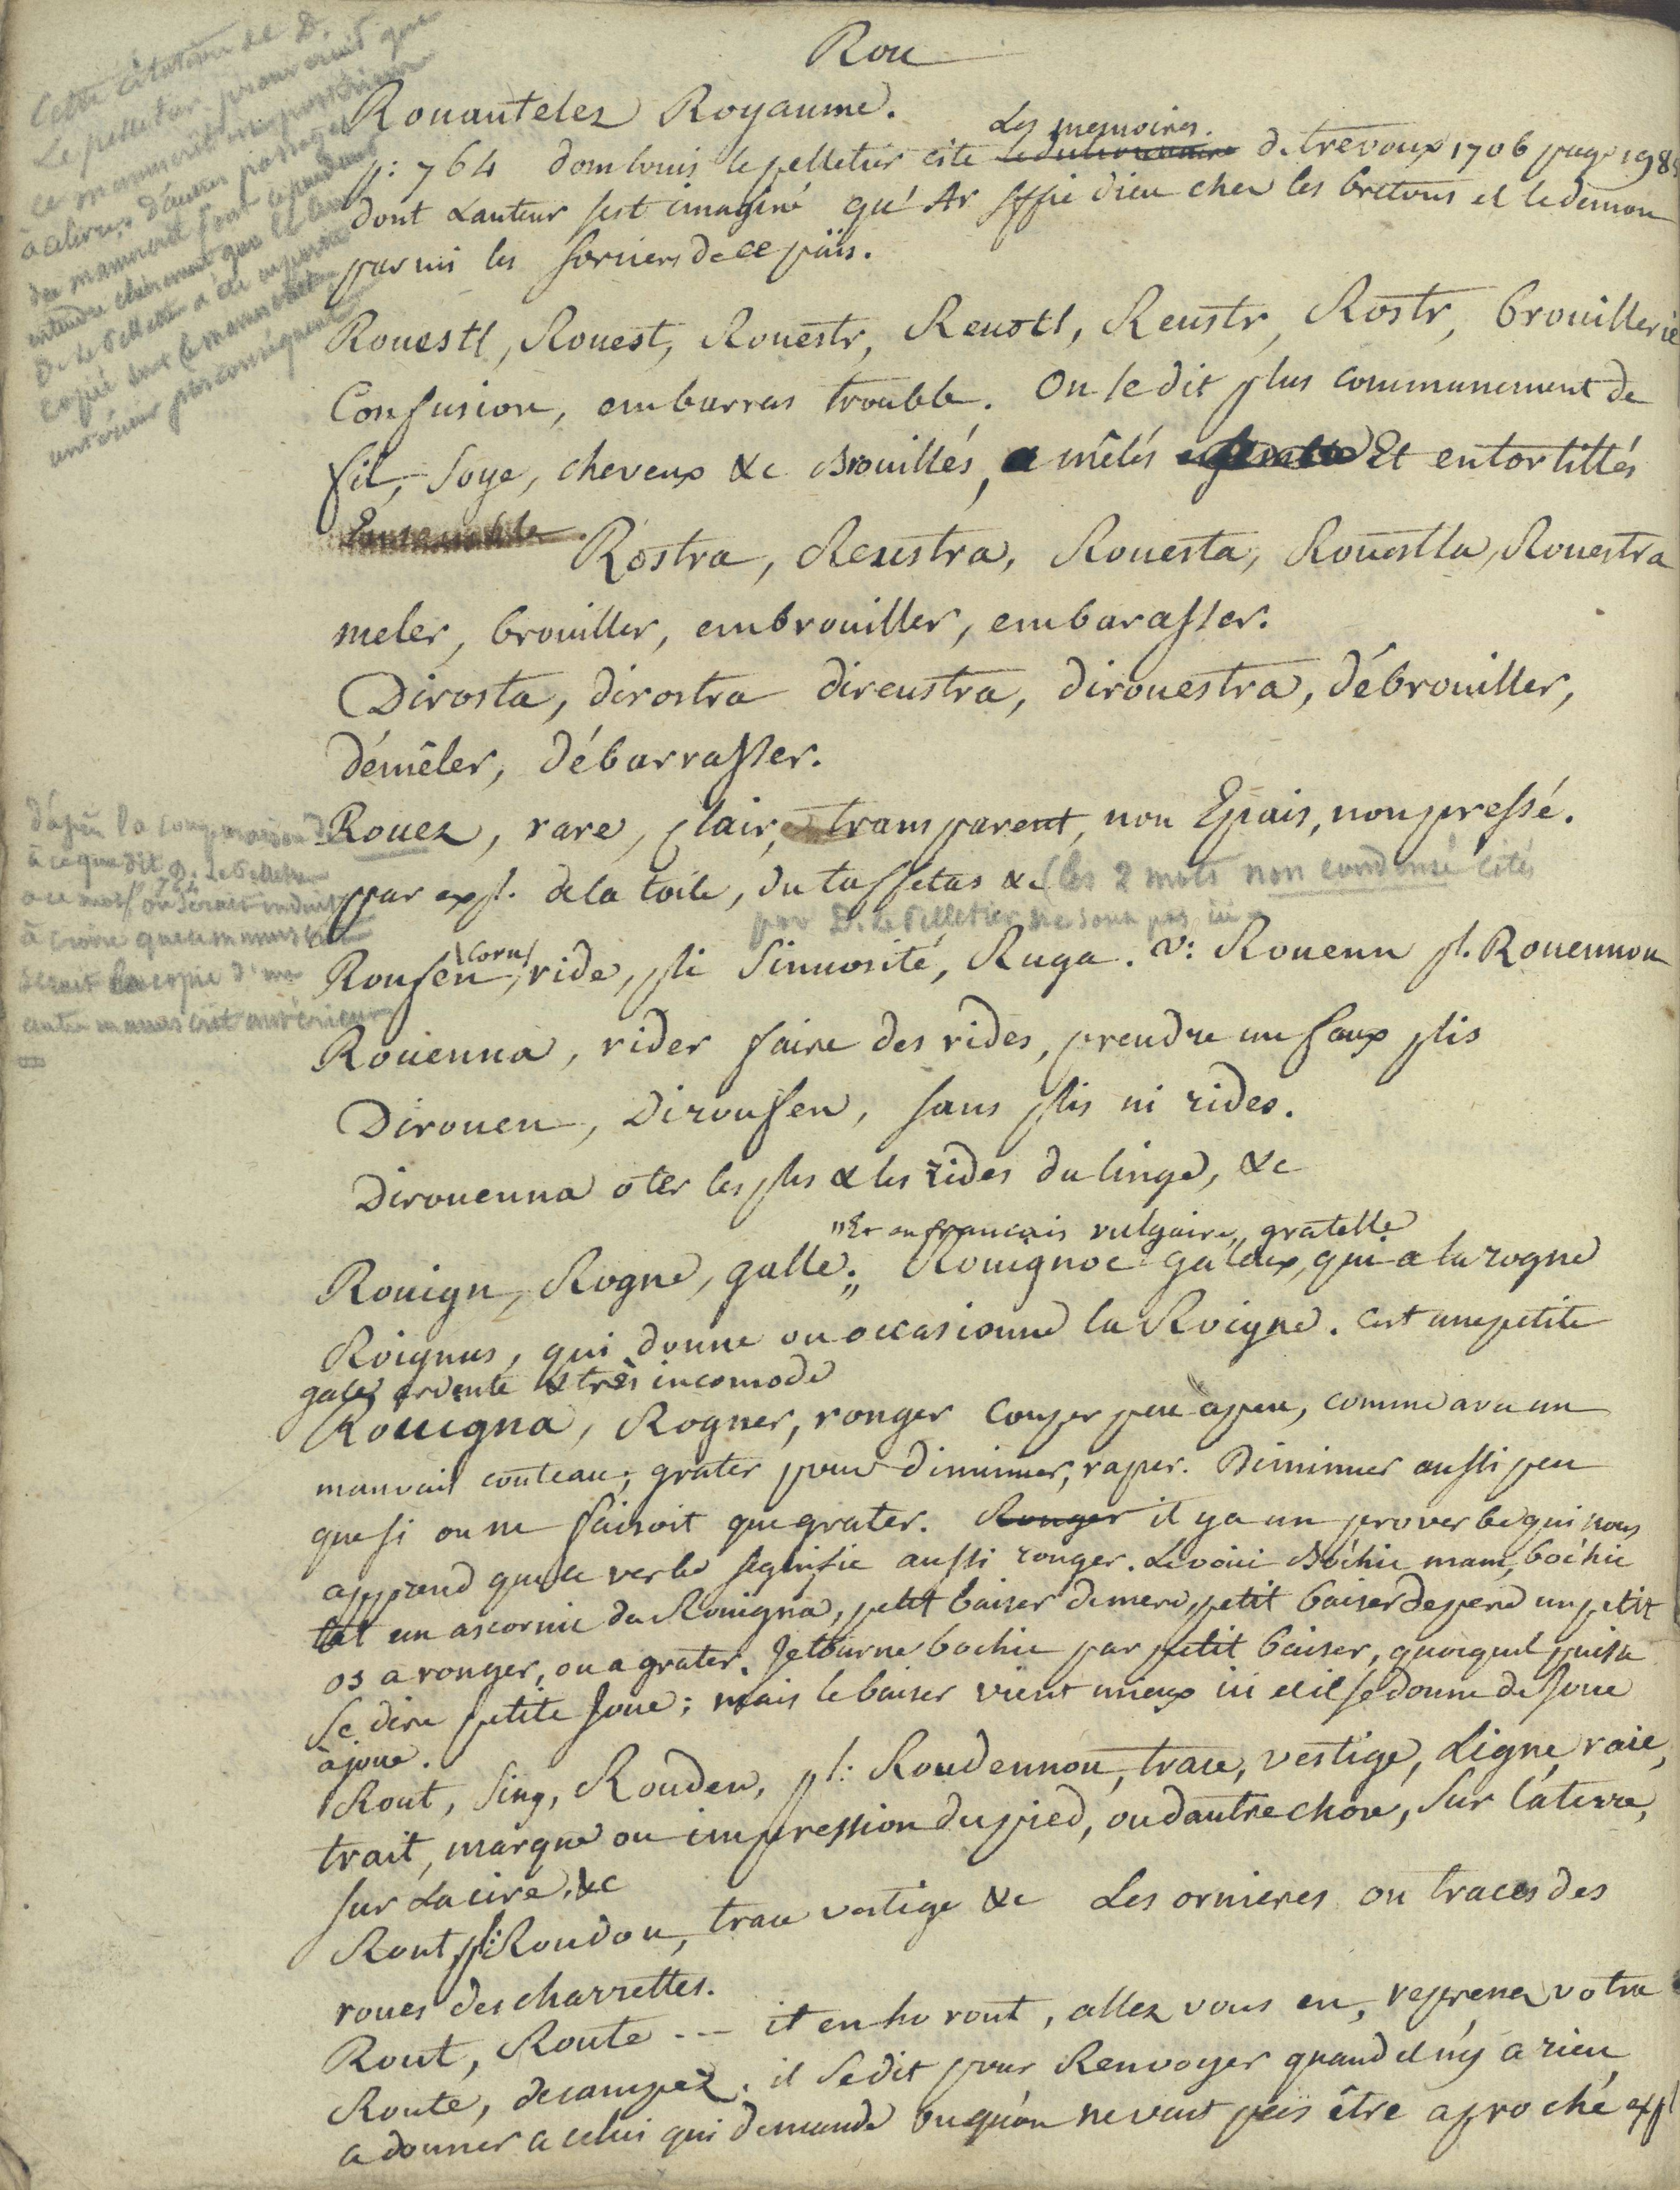 Rou
Cette citation de D.
Le pelletier prouverait que
ce manuscrit est postérieur
à celui-ci d'autres passages
du manuscrit font cependant
entendre clairement que le
D. Le Pelletier a été
copié sur le manuscrit
antérieur par conséquent
Rouantelez Royaume.
Les memoires.
p: 764 dom louis le pelletier cite de trevoux 1706 page 198
dont Lauteur s'est imaginé qu'Ar dieu chez les bretons et le demon
parmi les sorciers de ce païs.
Rouestl, Rouest, Rouestr, Reustl, Reustr, Rostr, brouillerie
Confusion, embarras trouble. On le dit plus communement de
fil, soye, cheveux &c Brouillés, mêlés Et entortillés
Ensemble.
Rostra, Reustra, Rouesta, Rouestla, Rouestra
meler, brouiller, embrouiller, embarasser.
Dirosta, dirostra direustra, dirouestra, débrouiller,
démêler, débarrasser.
Rouez, rare, clair, transparent, non Epais, non pressé.
par expl. de la toile, du taffetas &c (les 2 mots non condensé cités
par D. Le Pelletier ne sont pas ici
d'après la comparaison de
à ce que dit D. Le Pelletier
à ce mot on serait induit
à croire que ce manuscrit
serait la copie d'un
autre manuscrit antérieur
Roufen, (Corn) ride, pli Sinuosité, Ruga. v: Rouenn pl. Rouennou
Rouenna, rider faire des rides, prendre un faux plis
Dirouen, Diroufen, sans plis ni rides.
Dirouenna oter les plis & les rides du linge, &c
"Et en francais vulgaire, gratelle
Rouign, Rogne, galle; Rouignoc galeux, qui a la rogne
Roignus, qui donne ou occasionne la Roigne. C'est une petite
gale ardente & très incomode
Rouigna, Rogner, ronger couper peu à peu, comme avec un
mauvais couteau; grater pour diminuer, raper. Diminuer aussi peu
que si on ne faisoit que grater. Ronger il y a un proverbe qui nous
apprend que ce verbe signifie aussi ronger. Le voici Bóchic mam, bochic
tat un ascornic da Rouigna, petit baiser de mere, petit baiser de pere un petit
os a ronger, ou a grater. Je tourne bochic par petit baiser, quoiqu'il puisse
se dire petite Joue; mais le baiser vient mieux ici et il se donne de joue
à joue.
Rout, sing, Rouden, pl: Roudennou, trace, vestige, Ligne, raie,
trait, marque ou impression du pied, ou d'autre chose, sur la terre,
sur La cire, &c
Rout pl: Roudou, trace vestige &c Les ornieres ou traces des
roues des charrettes.
Rout, Route --- it en ho rout, allez vous en, reprenez votre
Route, decampez. il se dit pour Renvoyer quand il n'y a rien
a donner a celui qui demande ou qu'on ne veut pas être aproché expl